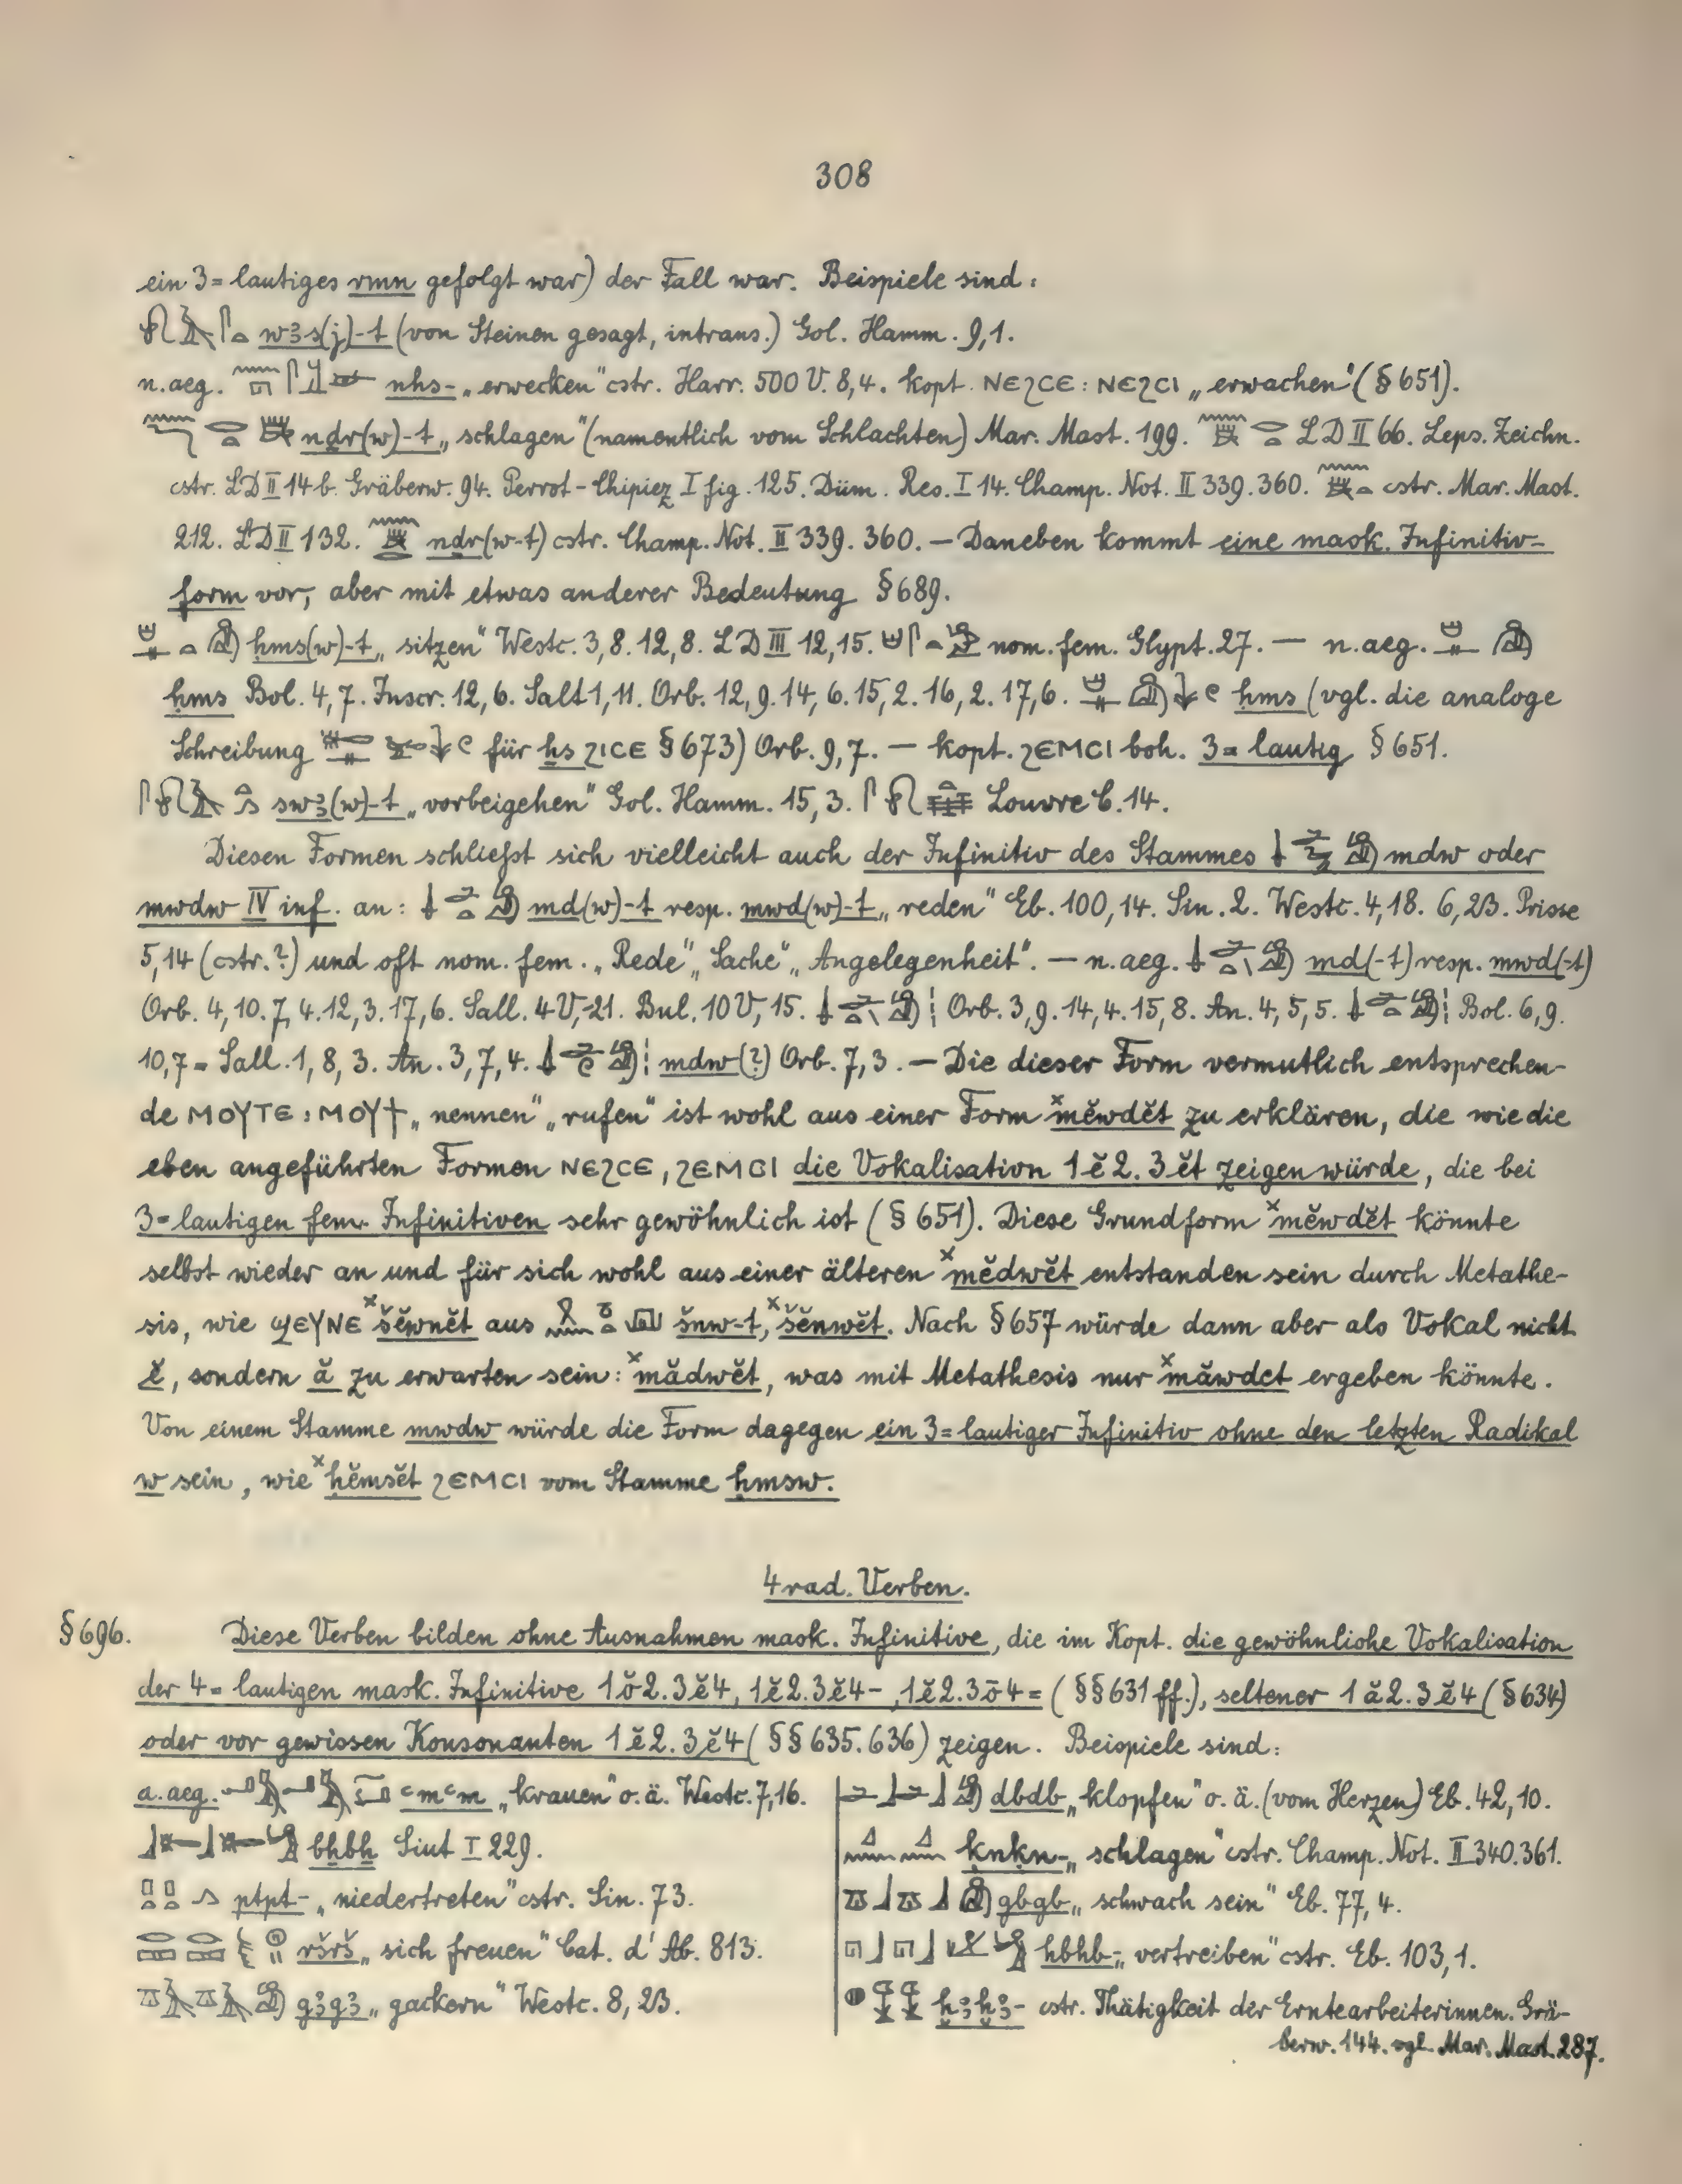 308
ein 3=lautiges rmn gefolgt war) der Fall war. Beispiele sind:
wꜣs(j)-t (von Steinen gesagt, intrans.) Gol. Hamm. 9,1.
n.aeg. nhs- „erwecken" cstr. Harr. 500 V. 8,4. kopt. ⲚⲈϨⲤⲈ : ⲚⲈϨⲤⲒ „erwachen" (§651).
nḏr(w)-t „schlagen" (namentlich vom Schlachten) Mar. Mast. 199. LD II 66. Leps. Zeichn.
cstr. LD II 14b. Gräberw. 94. Perrot-Chipiez I fig. 125. Düm. Res. I 14. Champ. Not. II 339. 360. cstr. Mar. Mast.
212. LD II 132. nḏr(w-t) cstr. Champ. Not. II 339. 360. — Daneben kommt eine mask. Infinitiv-
form vor, aber mit etwas anderer Bedeutung §689.
ḥms(w)-t „sitzen" Westc. 3,8. 12,8. LD III 12,15. nom. fem. Glypt. 27. — n.aeg.
ḥms Bol. 4,7. Inscr. 12,6. Salt 1,11. Orb. 12,9. 14,6. 15,2. 16,2. 17,6. ḥms (vgl. die analoge
Schreibung für ḥs ϨⲒⲤⲈ §673) Orb. 9,7. — kopt. ϨⲈⲘⲤⲒ boh. 3=lautig §651.
swꜣ(w)-t „vorbeigehen" Gol. Hamm. 15,3. Louvre C. 14.
Diesen Formen schließt sich vielleicht auch der Infinitiv des Stammes mdw oder
mwdw IV inf. an: md(w)-t resp. mwd(w)-t „reden" Eb. 100,14. Sin. 2. Westc. 4,18. 6,23. Prisse
5,14 (cstr.?) und oft nom. fem. „Rede" „Sache" „Angelegenheit". — n.aeg. md(-t) resp. mwd(-t)
Orb. 4,10. 7,4. 12,3. 17,6. Sall. 4 V, 21. Bul. 10 V, 15. Orb. 3,9. 14,4. 15,8. An. 4,5,5. Bol. 6,9.
10,7 = Sall. 1,8,3. An. 3,7,4. mdw(?) Orb. 7,3. — Die dieser Form vermutlich entsprechen-
de ⲘⲞⲨⲦⲈ : ⲘⲞⲨϮ „nennen" „rufen" ist wohl aus einer Form ˣmĕwdĕt zu erklären, die wie die
eben angeführten Formen ⲚⲈϨⲤⲈ, ϨⲈⲘⲤⲒ die Vokalisation 1ĕ2.3ĕt zeigen würde, die bei
3=lautigen fem. Infinitiven sehr gewöhnlich ist (§651). Diese Grundform ˣmĕwdĕt könnte
selbst wieder an und für sich wohl aus einer älteren ˣmĕdwĕt entstanden sein durch Metathe-
sis, wie ϢⲈⲨⲚⲈ ˣšĕwnĕt aus šnw-t, ˣšĕnwĕt. Nach §657 würde dann aber als Vokal nicht
ĕ, sondern ă zu erwarten sein: ˣmădwĕt, was mit Metathesis nur ˣmăwdĕt ergeben könnte.
Von einem Stamme mwdw würde die Form dagegen ein 3=lautiger Infinitiv ohne den letzten Radikal
w sein, wie ˣḥĕmsĕt ϨⲈⲘⲤⲒ vom Stamme ḥmsw.
4rad. Verben.
§696. Diese Verben bilden ohne Ausnahmen mask. Infinitive, die im Kopt. die gewöhnliche Vokalisation
der 4=lautigen mask. Infinitive 1ŏ2.3ĕ4, 1ĕ2.3ĕ4-, 1ĕ2.3ō4= (§§631 ff.), seltener 1ă2.3ĕ4 (§634)
oder vor gewissen Konsonanten 1ĕ2.3ĕ4 (§§635. 636) zeigen. Beispiele sind:
a.aeg. ꜥmꜥm „krauen" o.ä. Westc. 7,16.
bḥbḥ Siut I 229.
ptpt- „niedertreten" cstr. Sin. 73.
ršrš „sich freuen" Cat. d'Ab. 813.
gꜣgꜣ „gackern" Westc. 8,23.
dbdb „klopfen" o.ä. (vom Herzen) Eb. 42,10.
ḳnḳn- „schlagen" cstr. Champ. Not. II 340. 361.
gbgb „schwach sein" Eb. 77,4.
hbhb- „vertreiben" cstr. Eb. 103,1.
ḫꜣḫꜣ- cstr. Thätigkeit der Erntearbeiterinnen. Grä-
berw. 144. vgl. Mar. Mast. 287.